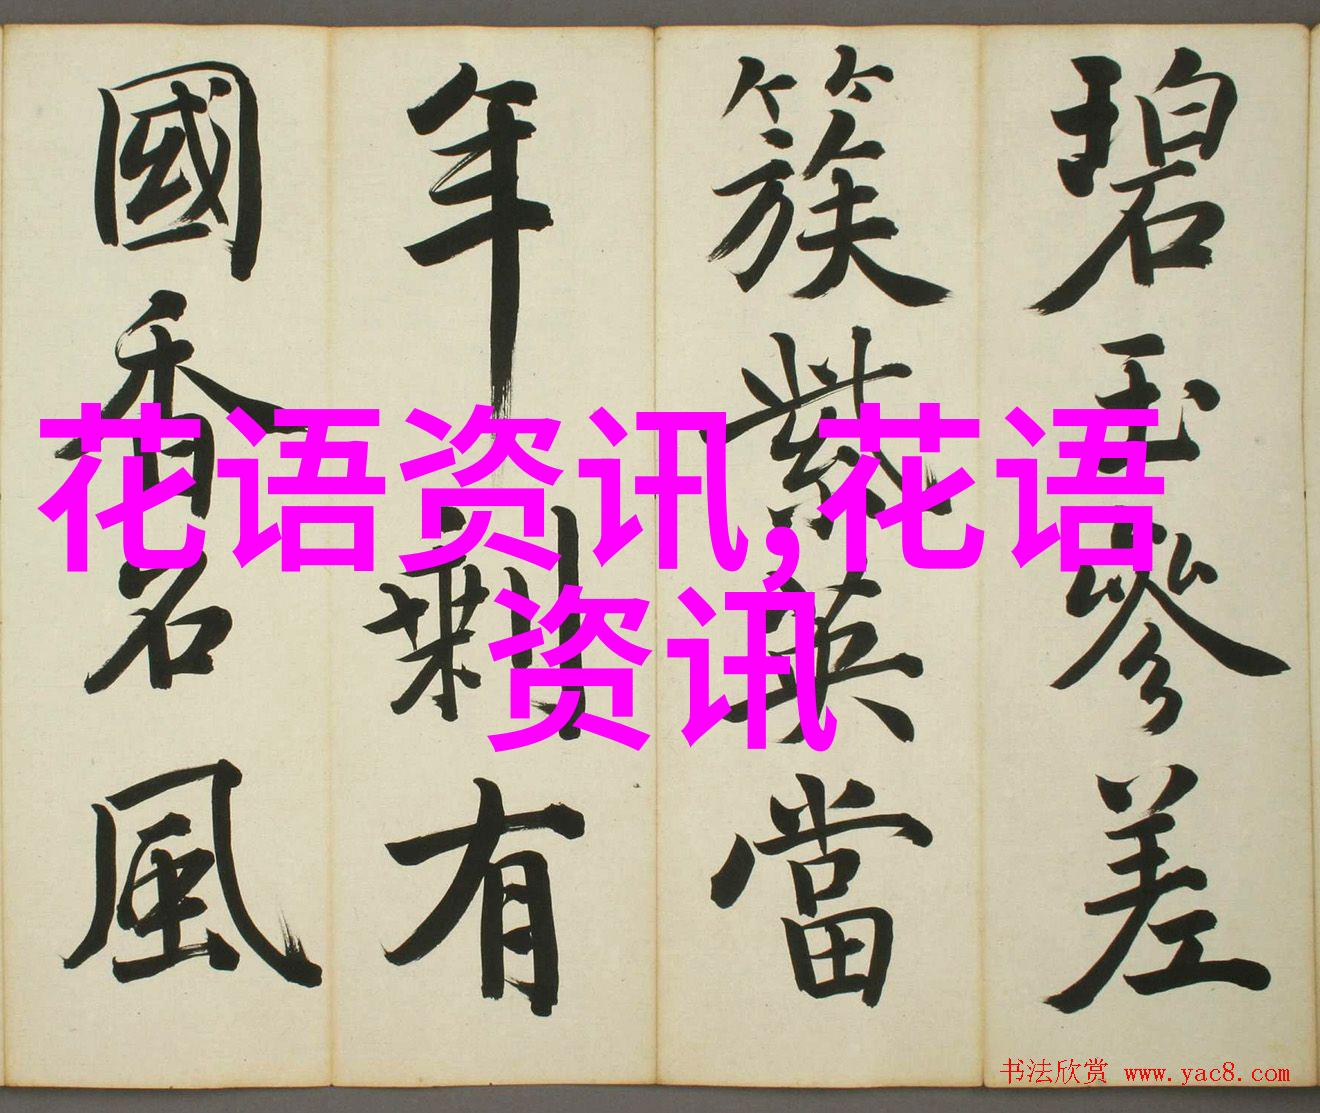 碧玉參差
簇紫英當
年剩有
國香名風
花语资讯,花语
资讯
书法欣赏 www.yac8.com